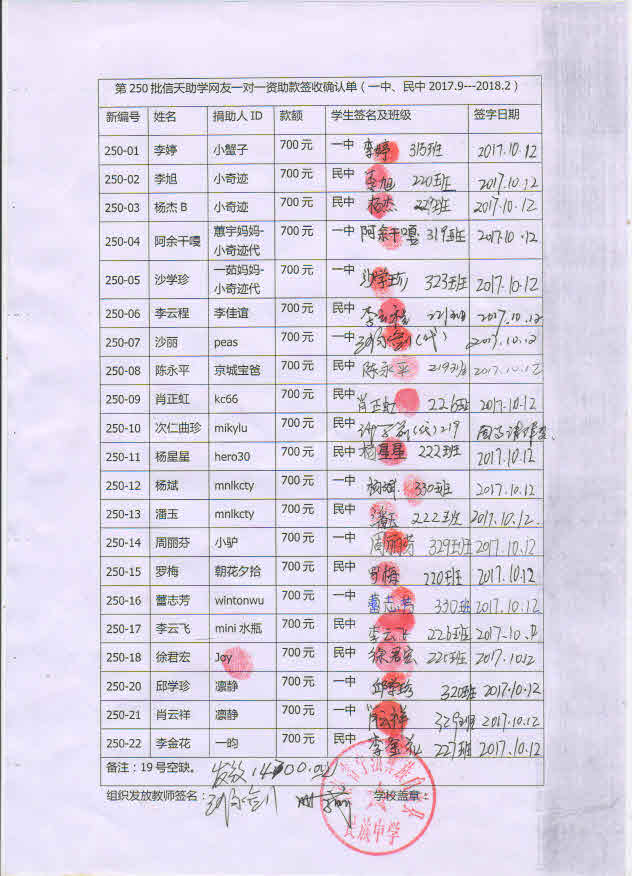 第250批信天助学网友一对一资助款签收确认单（一中、民中2017.9---2018.2）
新编号 姓名 捐助人ID 款额 学生签名及班级 签字日期
250-01 李婷 小蟹子 700元 一中 李婷 315班 2017.10.12
250-02 李旭 小奇迹 700元 民中 李旭 220班 2017.10.12
250-03 杨杰B 小奇迹 700元 民中 杨杰 229班 2017.10.12
250-04 阿余干嘎 蕙宇妈妈-小奇迹代 700元 一中 阿余干嘎 319班 2017.10.12
250-05 沙学珍 一茹妈妈-小奇迹代 700元 一中 沙学珍 323班 2017.10.12
250-06 李云程 李佳谊 700元 民中 李云程 221班 2017.10.12
250-07 沙丽 peas 700元 一中 (代) 2017.10.12
250-08 陈永平 京城宝爸 700元 民中 陈永平 219班 2017.10.12
250-09 肖正虹 kc66 700元 民中 肖正虹 226班 2017.10.12
250-10 次仁曲珍 mikylu 700元 民中 219
250-11 杨星星 hero30 700元 民中 杨星星 222班 2017.10.12
250-12 杨斌 mnlkcty 700元 一中 杨斌 330班 2017.10.12
250-13 潘玉 mnlkcty 700元 民中 潘玉 222班 2017.10.12.
250-14 周丽芬 小驴 700元 一中 周丽芬 329班 2017.10.12
250-15 罗梅 朝花夕拾 700元 民中 罗梅 220班 2017.10.12
250-16 蔷志芳 wintonwu 700元 一中 330班 2017.10.12
250-17 李云飞 mini水瓶 700元 民中 李云飞 226班 2017.10.
250-18 徐君宏 Joy 700元 民中 徐君宏 220班 2017.1012
250-20 邱学珍 凛静 700元 一中 邱学珍 320班 2017.10.12
250-21 肖云祥 凛静 700元 一中 肖云祥 329班 2017.10.12
250-22 李金花 一昀 700元 民中 李金花 227班 2017.10.12
备注：19号空缺。 发放
组织发放教师签名： 学校盖章：
民族中学